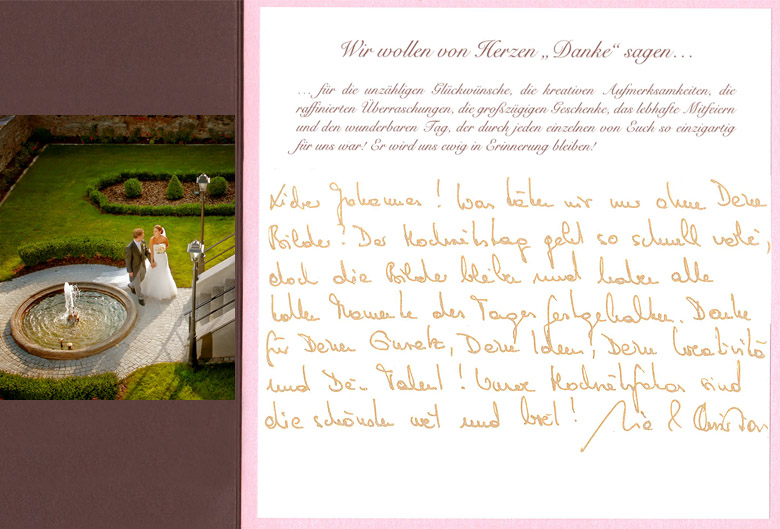 Wir wollen von Herzen „Danke“ sagen…
…für die unzähligen Glückwünsche, die kreativen Aufmerksamkeiten, die
raffinierten Überraschungen, die großzügigen Geschenke, das lebhafte Mitfeiern
und den wunderbaren Tag, der durch jeden einzelnen von Euch so einzigartig
für uns war! Er wird uns ewig in Erinnerung bleiben!
Lieber Johannes! Was täten wir nur ohne Deine
Bilder? Der Hochzeitstag geht so schnell vorbei,
doch die Bilder bleiben und haben alle
tollen Momente des Tages festgehalten. Danke
für Deinen Einsatz, Deine Ideen, Deine Kreativität
und Dein Talent! Unsere Hochzeitsfotos sind
die schönsten weit und breit! & Christian